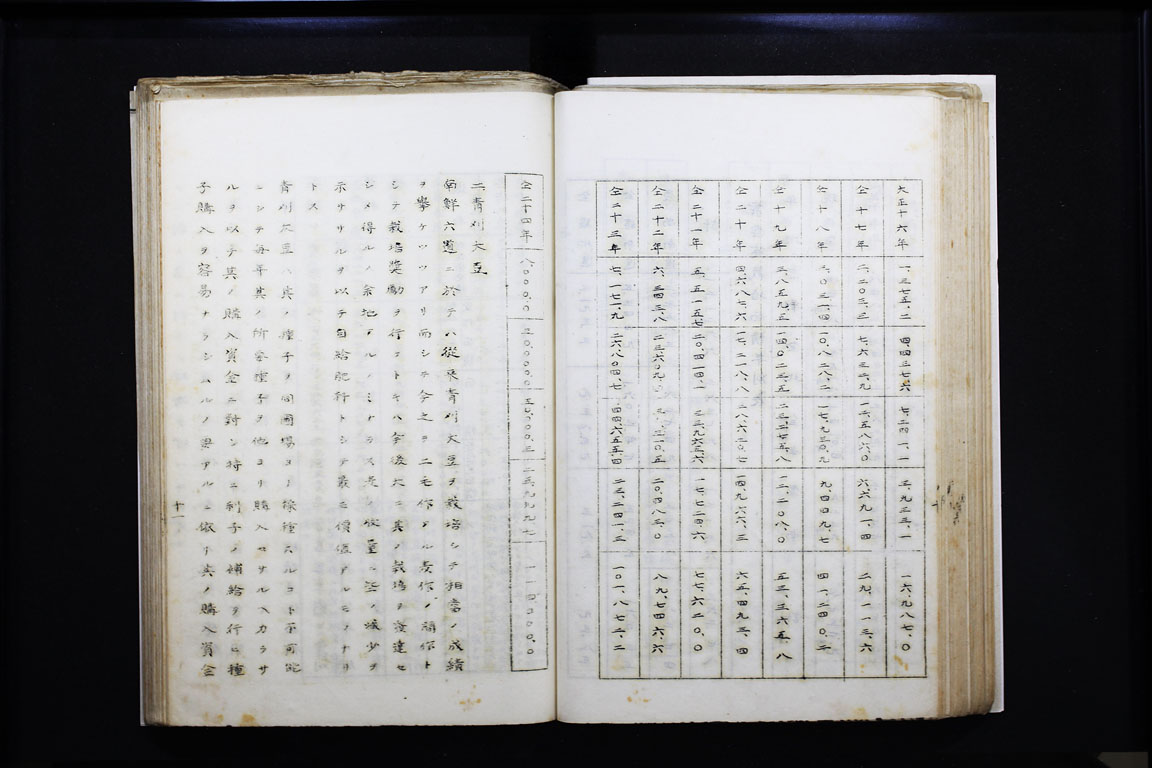 大正十六年 一、三七五、二 四、四三七、六 七、二四一、一 三、九三三、一 一六、九八七、〇
仝十七年 二、二〇三、三 七、六三三、九 一二、五八六、〇 六、六九一、四 二九、一一三、六
仝十八年 三、〇三一、四 一〇、八二八、二 一七、九三〇、九 九、四四九、七 四一、二四〇、二
仝十九年 三、八五九、五 一四、〇二三、五 二三、二七五、八 一二、二〇八、〇 五三、三六五、八
仝二十年 四、六八七、六 一七、二一八、八 二八、六二〇、七 一四、九六六、三 六五、四九三、四
仝二十一年 五、五一五、七 二〇、四一四、一 三三、九六五、六 一七、七二四、六 七七、六二〇、〇
仝二十二年 六、三四三、八 二三、六〇九、 二〇、四八三、〇 八九、七四六、六
仝二十三年 七、一七一、九 二六、八〇四、七 四四、六五五、四 二三、二四一、五 一〇一、八七三、二
仝二十四年 八、〇〇〇、〇 三〇、〇〇〇、〇 五〇、〇〇〇、三 二五、九九九、七 一一四、〇〇〇、〇
二青刈大豆
南鮮六道ニ於テハ從來青刈大豆ヲ栽培シテ相當ノ成績
ヲ擧ケツツアリ而シテ今之ヲ二毛作タル麦作ノ間作ト
シテ栽培奬勵ヲ行フトキハ今後大ニ其ノ栽培ヲ發達セ
シメ得ルノ余地アルノミナラス麦ノ收量ニ些ノ減少ヲ
示ササルヲ以テ自給肥料トシテ最モ價値アルモノナリ
トス
青刈大豆ハ其ノ種子ヲ同圃場ヨリ採種スルコト不可能
ニシテ毎年其ノ所要種子ヲ他ヨリ購入セサルヘカラサ
ルヲ以テ其ノ購入資金ニ對シ特ニ利子ノ補給ヲ行ヒ種
子購入ヲ容易ナラシムルノ要アルニ依リ其ノ購入資金
十一